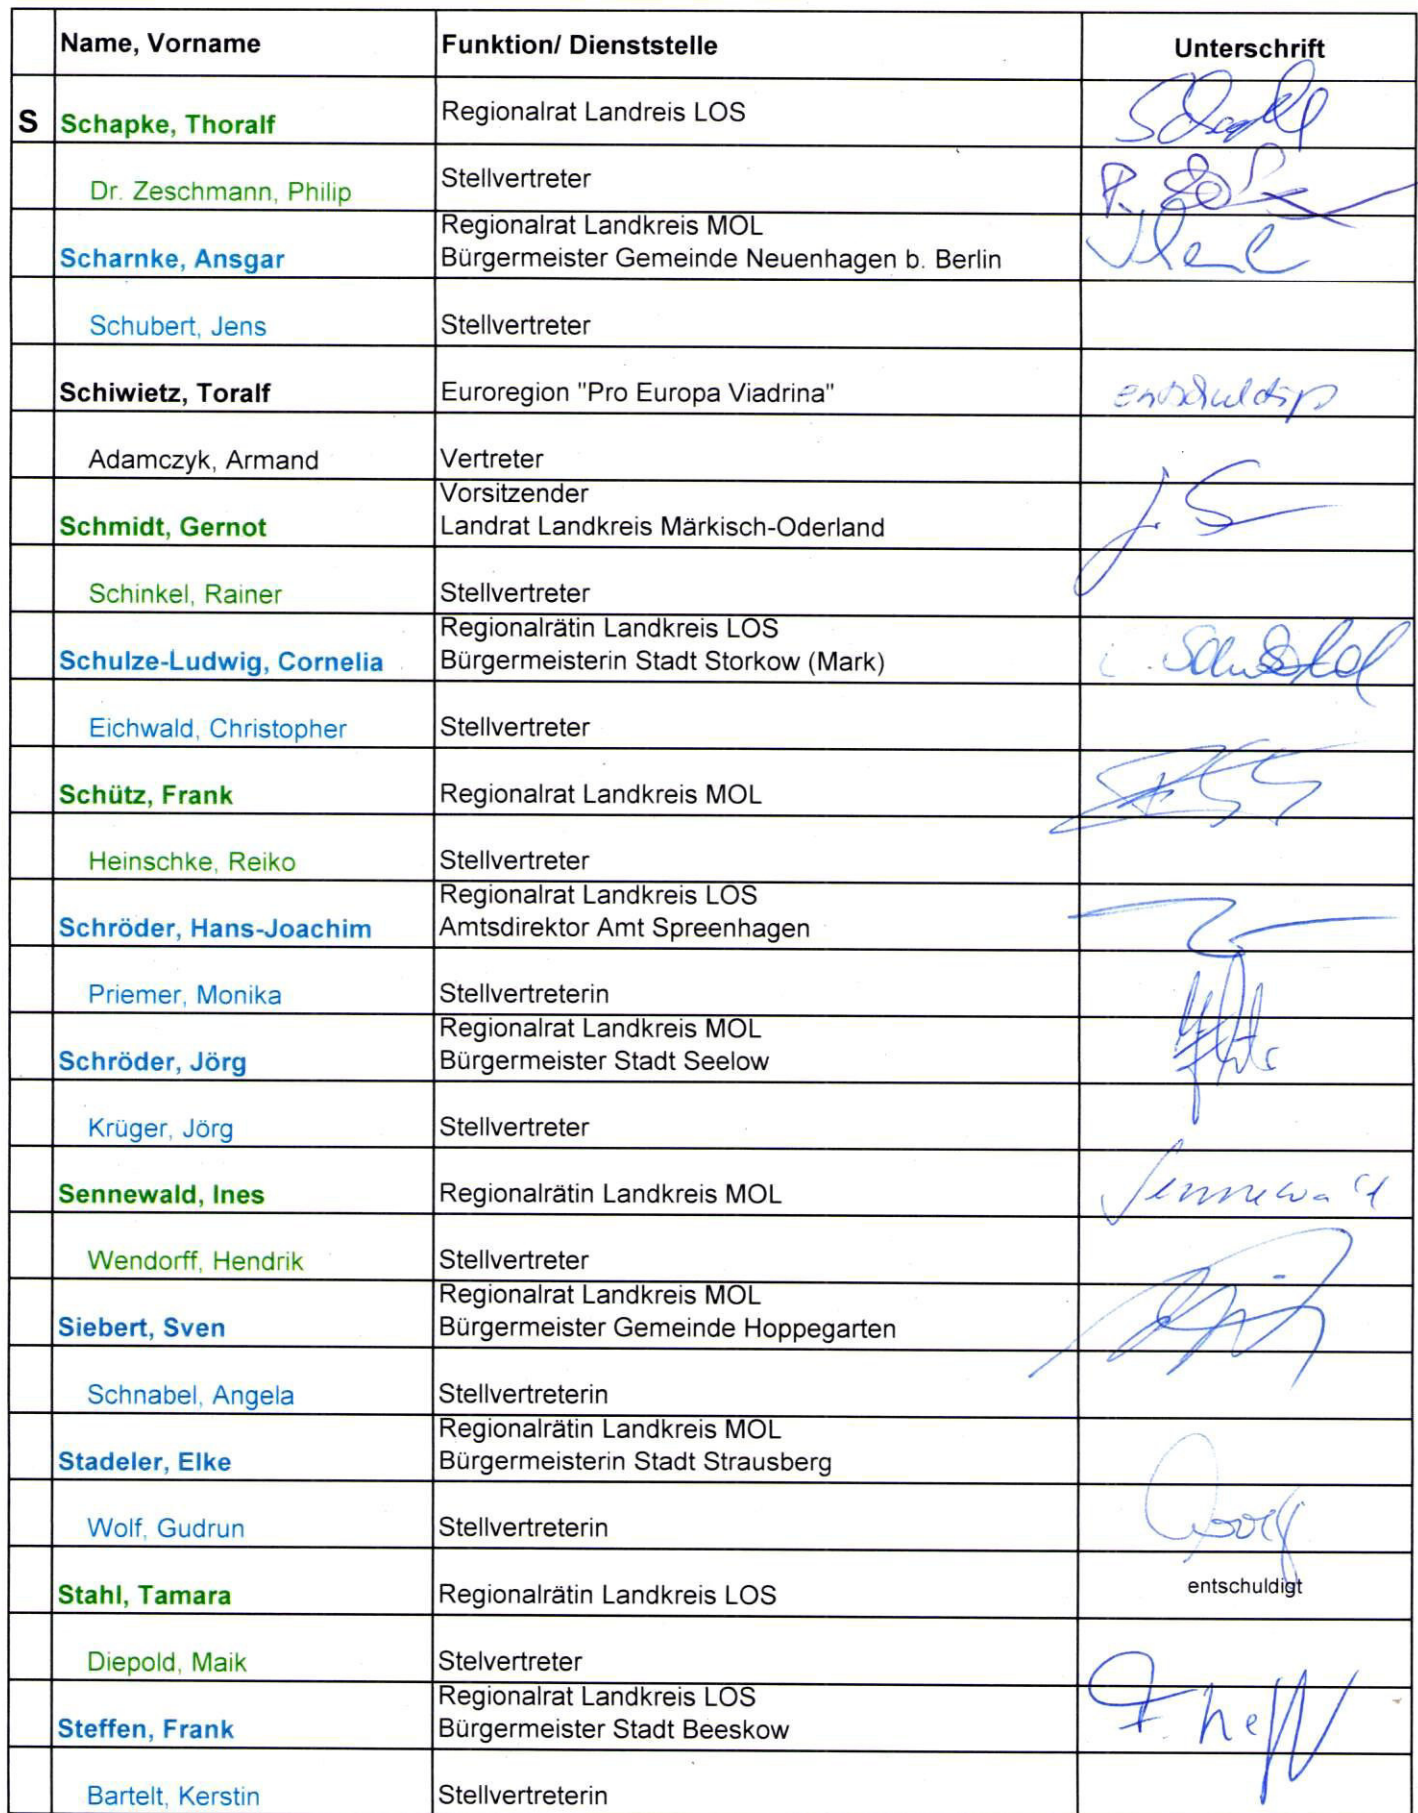 Name, Vorname Funktion/ Dienststelle Unterschrift
S Schapke, Thoralf Regionalrat Landreis LOS
Dr. Zeschmann, Philip Stellvertreter
Regionalrat Landkreis MOL
Scharnke, Ansgar Bürgermeister Gemeinde Neuenhagen b. Berlin
Schubert, Jens Stellvertreter
Schiwietz, Toralf Euroregion "Pro Europa Viadrina" entschuldigt
Adamczyk, Armand Vertreter
Vorsitzender
Schmidt, Gernot Landrat Landkreis Märkisch-Oderland
Schinkel, Rainer Stellvertreter
Regionalrätin Landkreis LOS
Schulze-Ludwig, Cornelia Bürgermeisterin Stadt Storkow (Mark)
Eichwald, Christopher Stellvertreter
Schütz, Frank Regionalrat Landkreis MOL
Heinschke, Reiko Stellvertreter
Regionalrat Landkreis LOS
Schröder, Hans-Joachim Amtsdirektor Amt Spreenhagen
Priemer, Monika Stellvertreterin
Regionalrat Landkreis MOL
Schröder, Jörg Bürgermeister Stadt Seelow
Krüger, Jörg Stellvertreter
Sennewald, Ines Regionalrätin Landkreis MOL Sennewald
Wendorff, Hendrik Stellvertreter
Regionalrat Landkreis MOL
Siebert, Sven Bürgermeister Gemeinde Hoppegarten
Schnabel, Angela Stellvertreterin
Regionalrätin Landkreis MOL
Stadeler, Elke Bürgermeisterin Stadt Strausberg
Wolf, Gudrun Stellvertreterin
Stahl, Tamara Regionalrätin Landkreis LOS entschuldigt
Diepold, Maik Stelvertreter
Regionalrat Landkreis LOS
Steffen, Frank Bürgermeister Stadt Beeskow
Bartelt, Kerstin Stellvertreterin